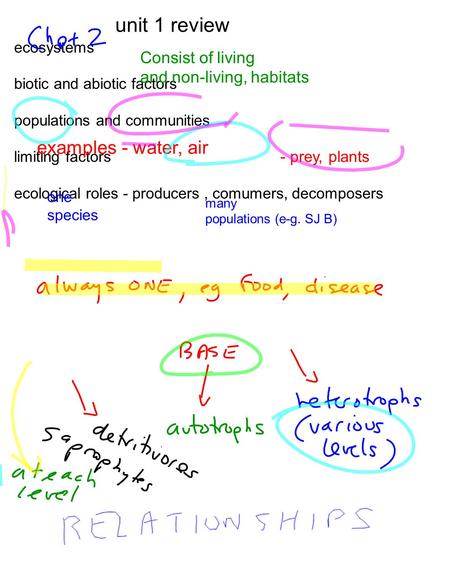 unit 1 review
Chpt 2
ecosystems
Consist of living
and non-living, habitats
biotic and abiotic factors
populations and communities
examples - water, air
- prey, plants
limiting factors
ecological roles - producers , comumers, decomposers
one
species
many
populations (e-g. SJ B)
always ONE, eg food, disease
BASE
heterotrophs
(various
levels)
autotrophs
detritivores
saprophytes
at each
level
RELATIONSHIPS